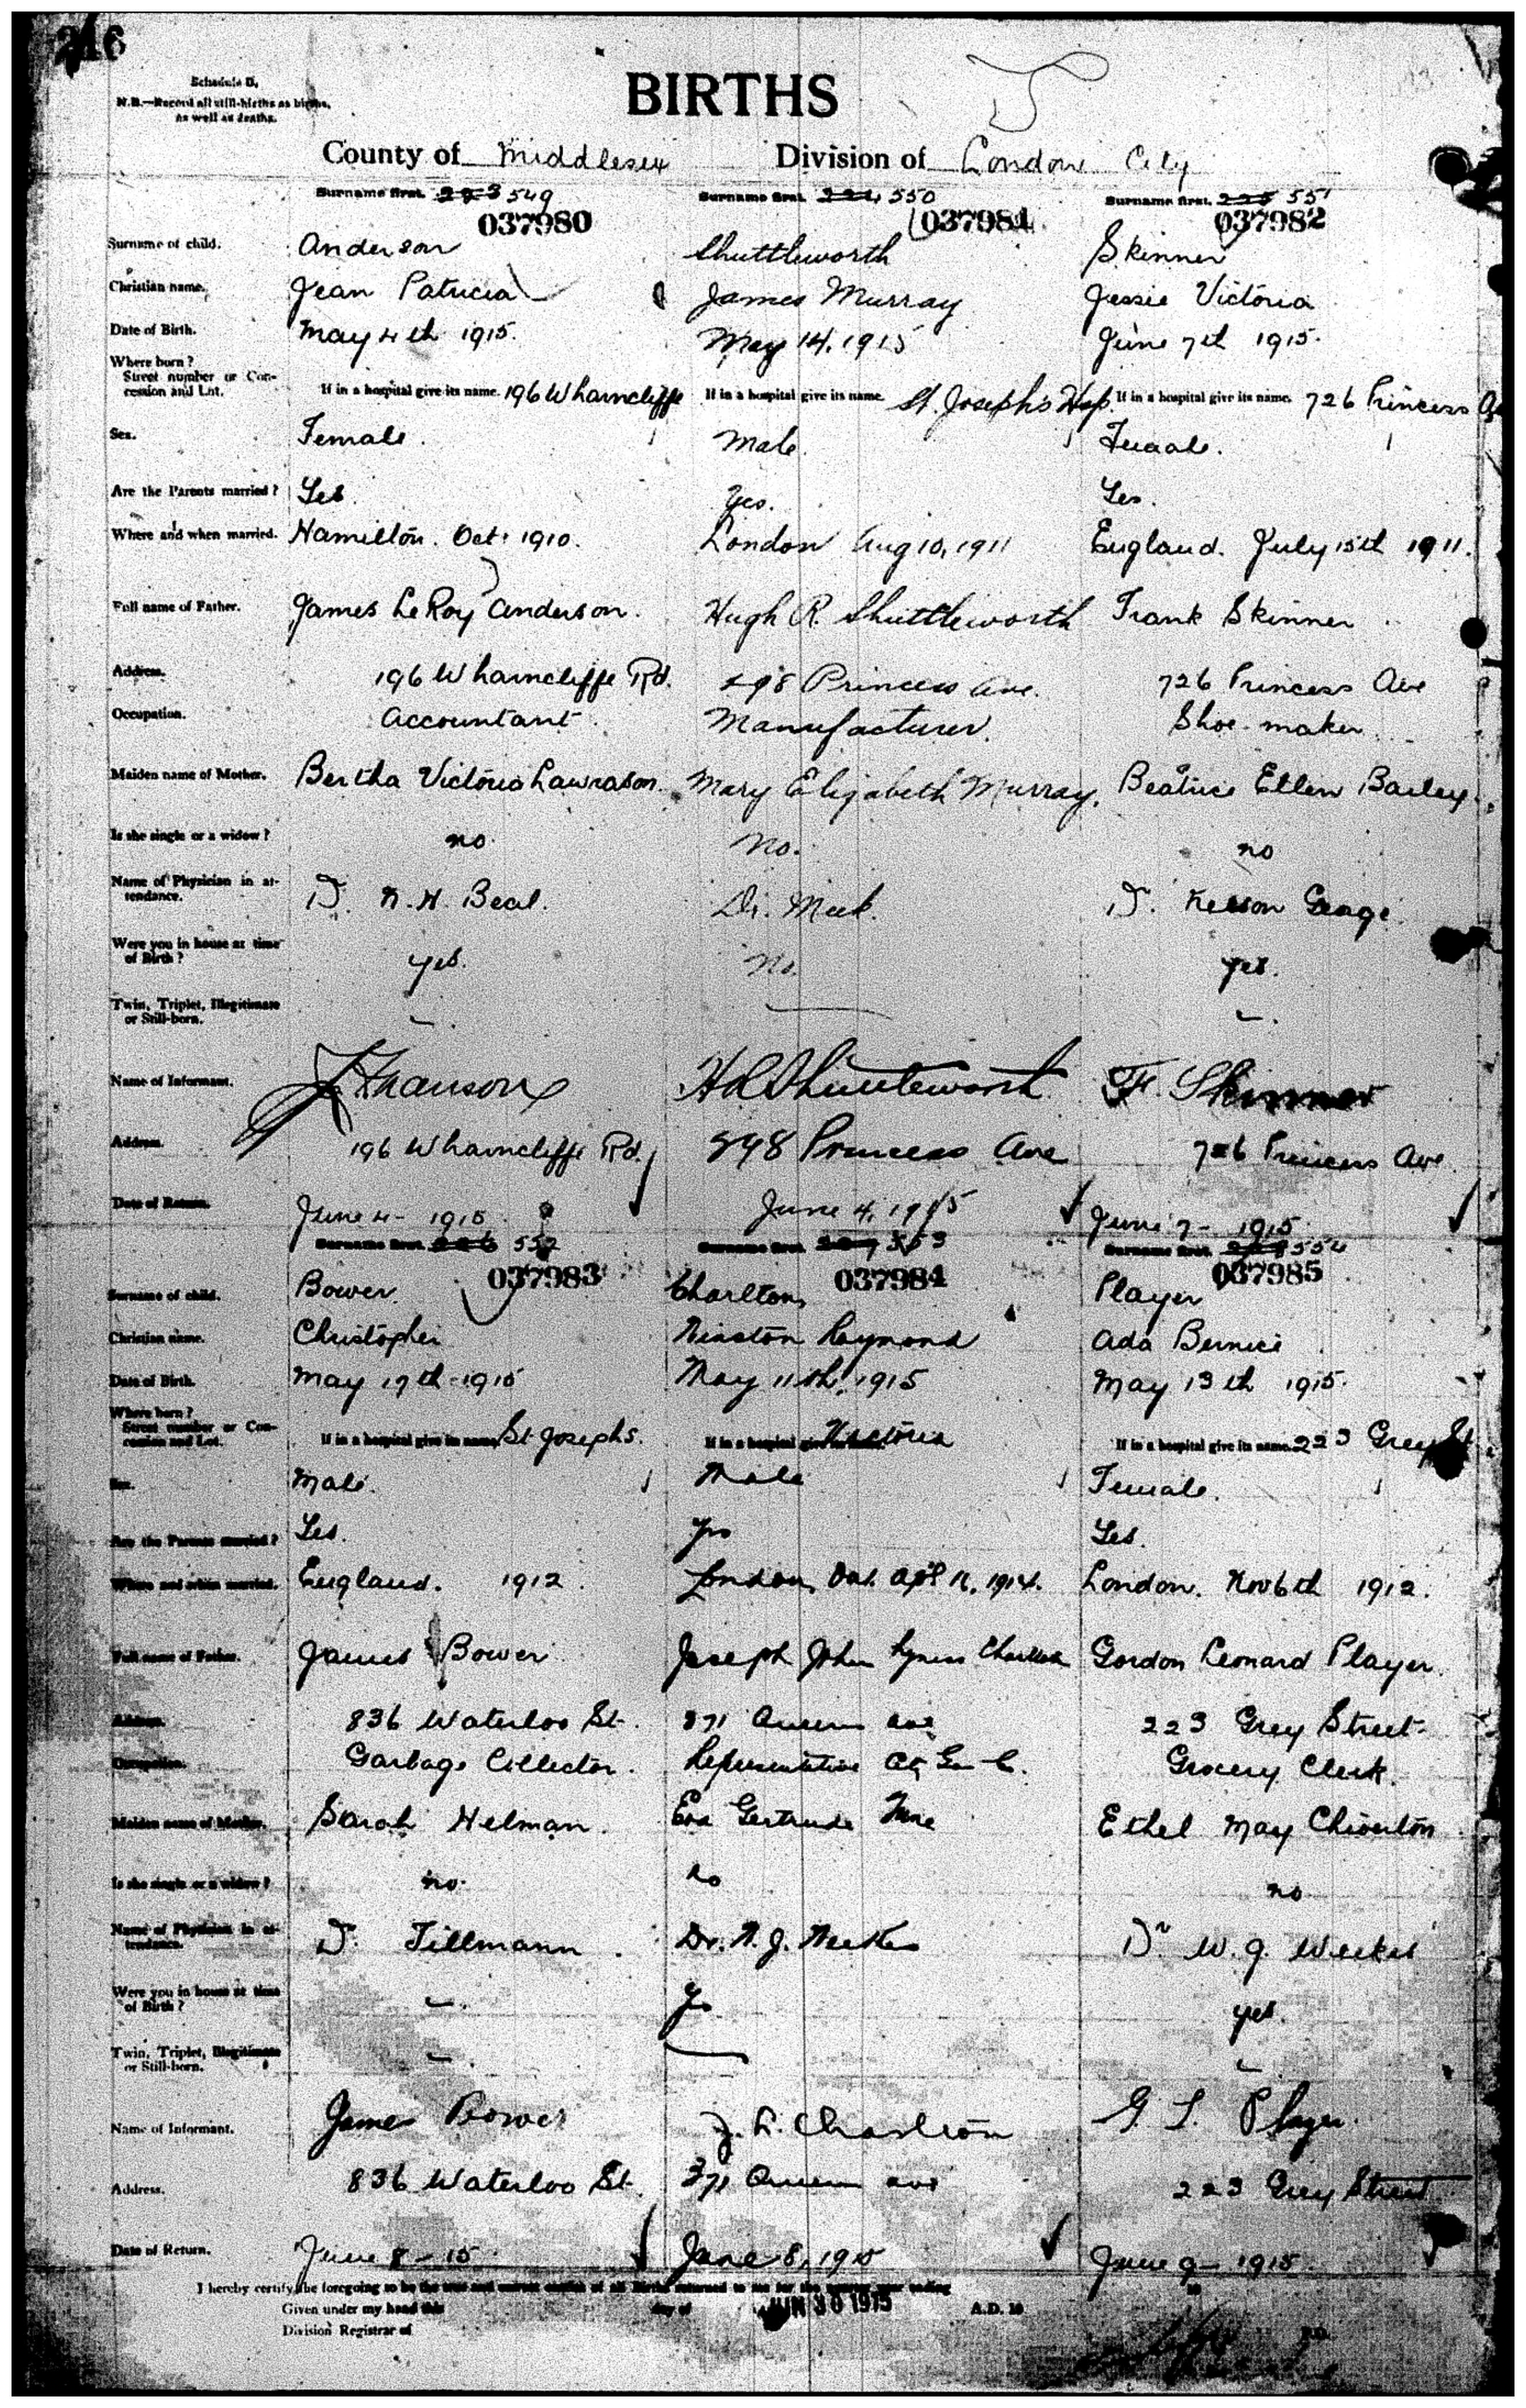 216
Schedule D.
N.B.—Record all still-births as births, as well as deaths.
BIRTHS
County of Middlesex Division of London City
Surname first. 223 549 Surname first. 224 550 Surname first. 225 551
037980 037981 037982
Surname of child. Anderson Shuttleworth Skinner
Christian name. Jean Patricia James Murray Jessie Victoria
Date of Birth. May 4th 1915. May 14, 1915 June 7th 1915.
Where born?
Street number or Concession and Lot. If in a hospital give its name. 196 Wharncliffe If in a hospital give its name. St. Joseph's Hosp. If in a hospital give its name. 726 Princess
Sex. Female. Male. Female.
Are the Parents married? Yes. Yes. Yes.
Where and when married. Hamilton. Oct. 1910. London Aug 10, 1911 England. July 15th 1911.
Full name of Father. James LeRoy Anderson. Hugh R. Shuttleworth Frank Skinner
Address. 196 Wharncliffe Rd. 298 Princess Ave. 726 Princess Ave
Occupation. Accountant. Manufacturer. Shoe-maker
Maiden name of Mother. Bertha Victoria Lawrason. Mary Elizabeth Murray. Beatrice Ellen Bailey
Is she single or a widow? no No. no
Name of Physician in attendance. Dr. N. H. Beal. Dr. Meek. Dr. George
Were you in house at time of Birth? yes. No. yes.
Twin, Triplet, Illegitimate or Still-born. — — —
Name of Informant. H R Shuttleworth F. Skinner
Address. 196 Wharncliffe Rd. 298 Princess Ave 726 Princess Ave
Date of Return. June 4 - 1915 June 4, 1915 June 7 - 1915
Surname first. 226 552 Surname first. 227 553 Surname first. 228 554
037983 037984 037985
Surname of child. Bower Charlton Player
Christian name. Christopher Winston Raymond Ada Bernice
Date of Birth. May 17th 1915 May 11th, 1915 May 13th 1915.
Where born?
Street number or Concession and Lot. If in a hospital give its name. St Josephs. If in a hospital give its name. Victoria If in a hospital give its name. 223 Grey St
Sex. Male. Male Female.
Are the Parents married? Yes. Yes Yes.
Where and when married. England. 1912. London, Ont. Apl 16, 1914. London. Nov 6th 1912.
Full name of Father. James Bower Joseph John Charlton Gordon Leonard Player.
Address. 836 Waterloo St. 371 Queens ave 223 Grey Street
Occupation. Garbage Collector. Representative Grocery Clerk.
Maiden name of Mother. Sarah Helman. Eva Gertrude Ethel May Chiverton
Is she single or a widow? no. no no
Name of Physician in attendance. Dr. Tillmann. Dr. W. J. Weekes Dr W. J. Weekes
Were you in house at time of Birth? — Yes yes.
Twin, Triplet, Illegitimate or Still-born. — — —
Name of Informant. James Bower Charlton G. L. Player.
Address. 836 Waterloo St. 371 Queens ave 223 Grey Street
Date of Return. June 8 - 15 June 8, 1915 June 9 - 1915
I hereby certify the foregoing to be the true and correct entries of all Births returned to me for the quarter year ending
Given under my hand this day of JUN 30 1915 A.D. 19
Division Registrar of